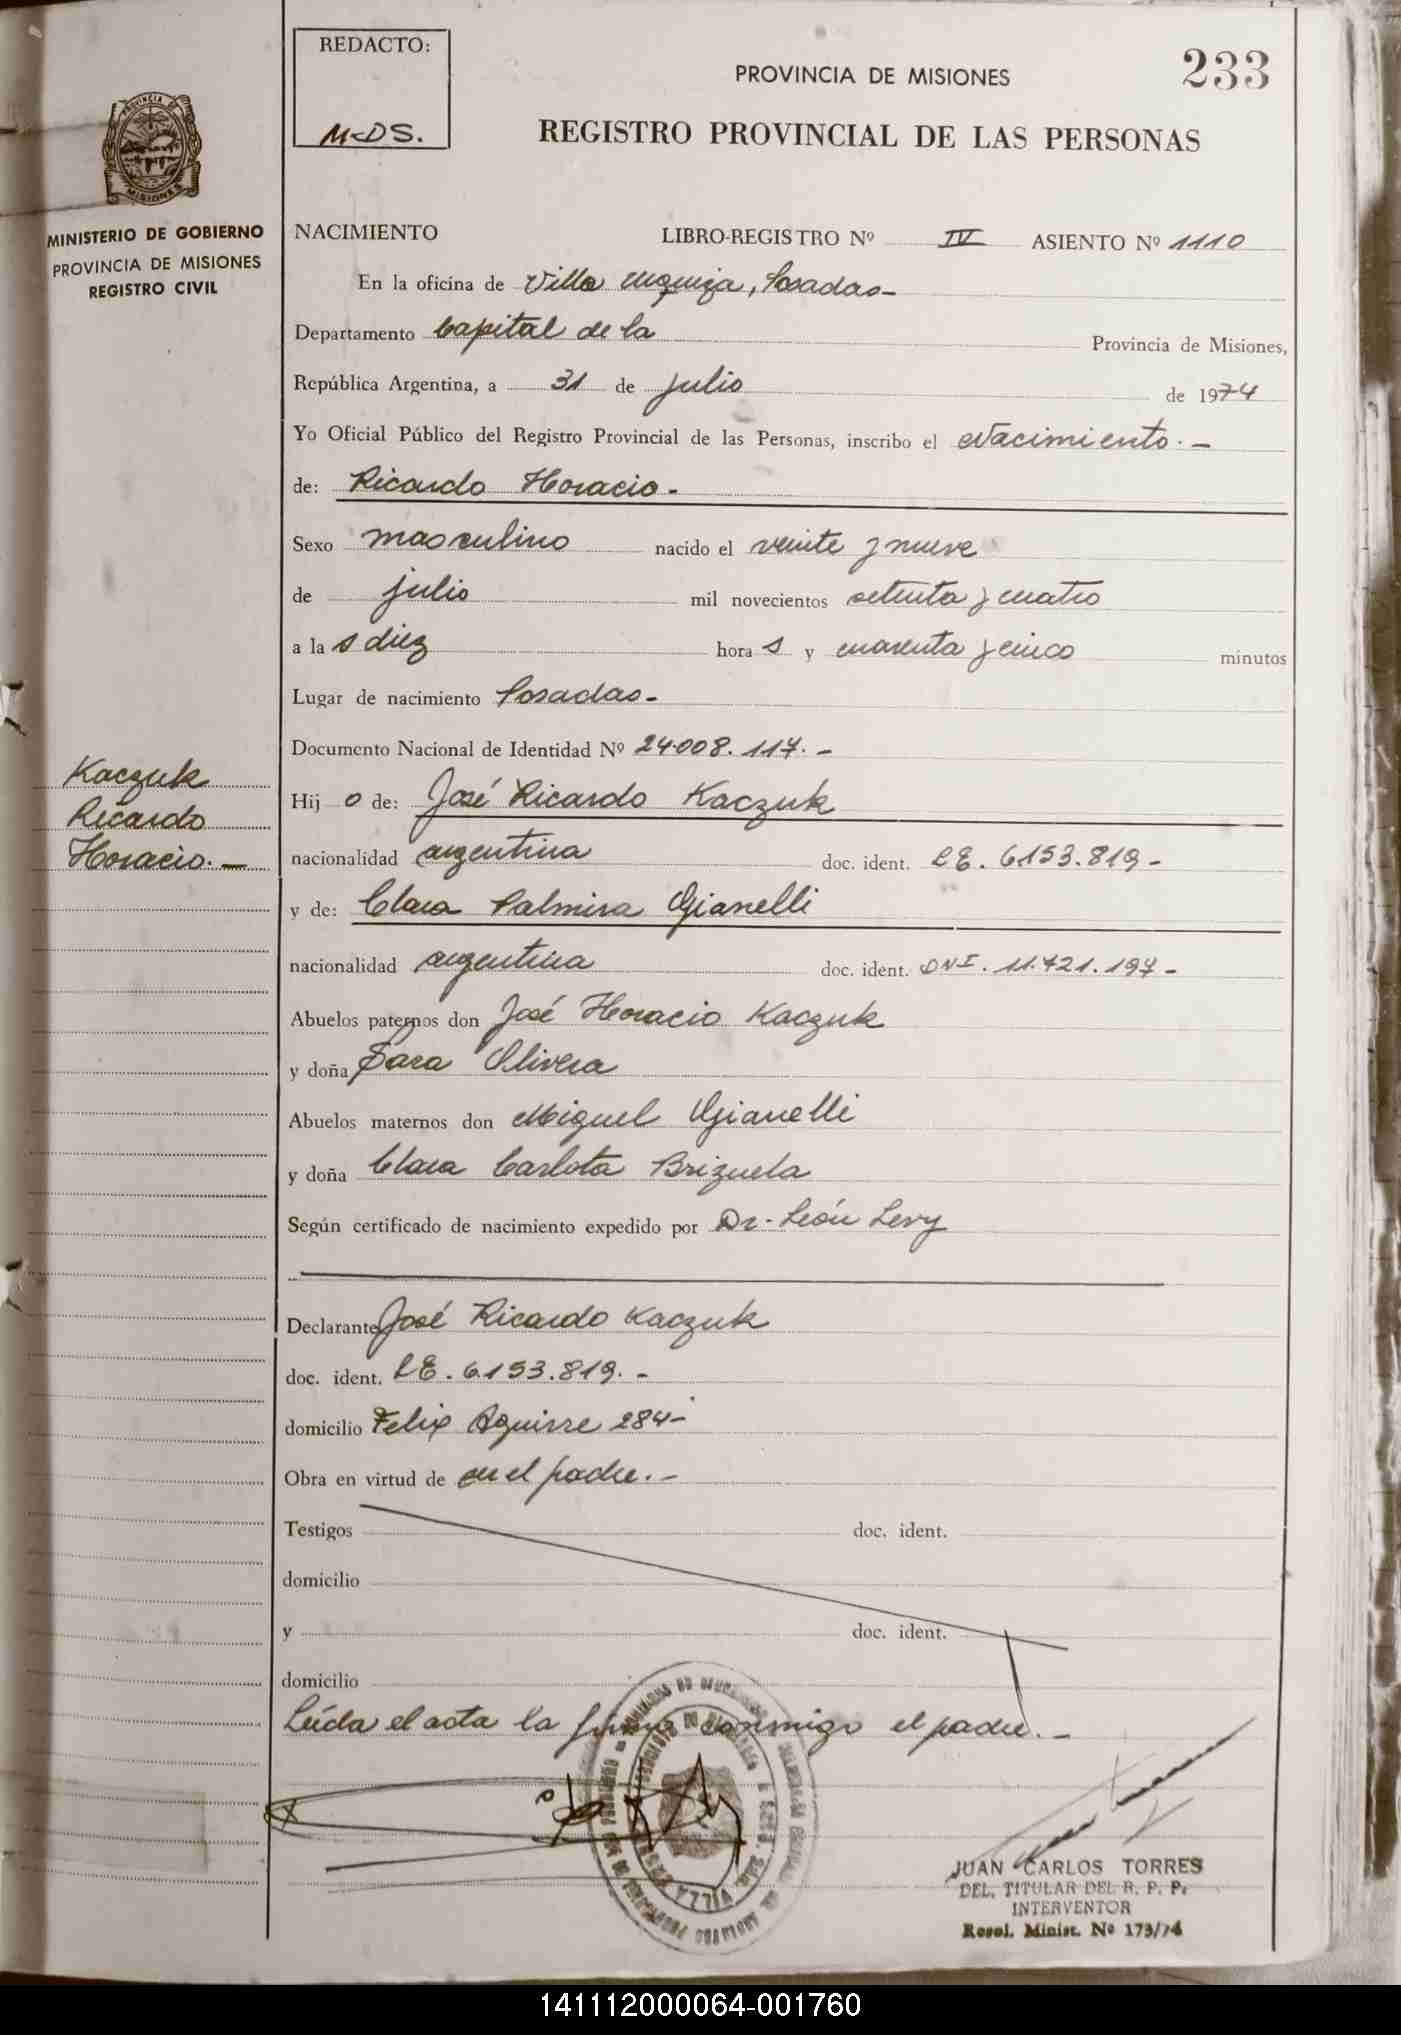 REDACTO:
McDS.
PROVINCIA DE MISIONES
233
REGISTRO PROVINCIAL DE LAS PERSONAS
PROVINCIA DE
MISIONES
MINISTERIO DE GOBIERNO
PROVINCIA DE MISIONES
REGISTRO CIVIL
NACIMIENTO LIBRO-REGISTRO Nº IV ASIENTO Nº 1110
En la oficina de Villa Urquiza, Posadas-
Departamento Capital de la Provincia de Misiones,
República Argentina, a 31 de julio de 1974
Yo Oficial Público del Registro Provincial de las Personas, inscribo el Nacimiento.-
de: Ricardo Horacio-
Sexo masculino nacido el veinte y nueve
de julio mil novecientos setenta y cuatro
a la s diez hora s y cuarenta y cinco minutos
Lugar de nacimiento Posadas-
Documento Nacional de Identidad Nº 24.008.117.-
Kaczuk
Ricardo
Horacio.-
Hij o de: José Ricardo Kaczuk
nacionalidad argentina doc. ident. LE. 6153.819-
y de: Clara Palmira Gianelli
nacionalidad argentina doc. ident. DNI. 11.721.197-
Abuelos paternos don José Horacio Kaczuk
y doña Sara Olivera
Abuelos maternos don Miguel Gianelli
y doña Clara Carlota Brizuela
Según certificado de nacimiento expedido por Dr. León Levy
Declarante José Ricardo Kaczuk
doc. ident. LE. 6.153.819.-
domicilio Felix Aguirre 284-
Obra en virtud de en el padre.-
Testigos doc. ident.
domicilio
y doc. ident.
domicilio
Leída el acta la firma conmigo el padre.-
VILLA
JUAN CARLOS TORRES
DEL. TITULAR DEL R. P. P.
INTERVENTOR
Resol. Minist. Nº 173/74
141112000064-001760